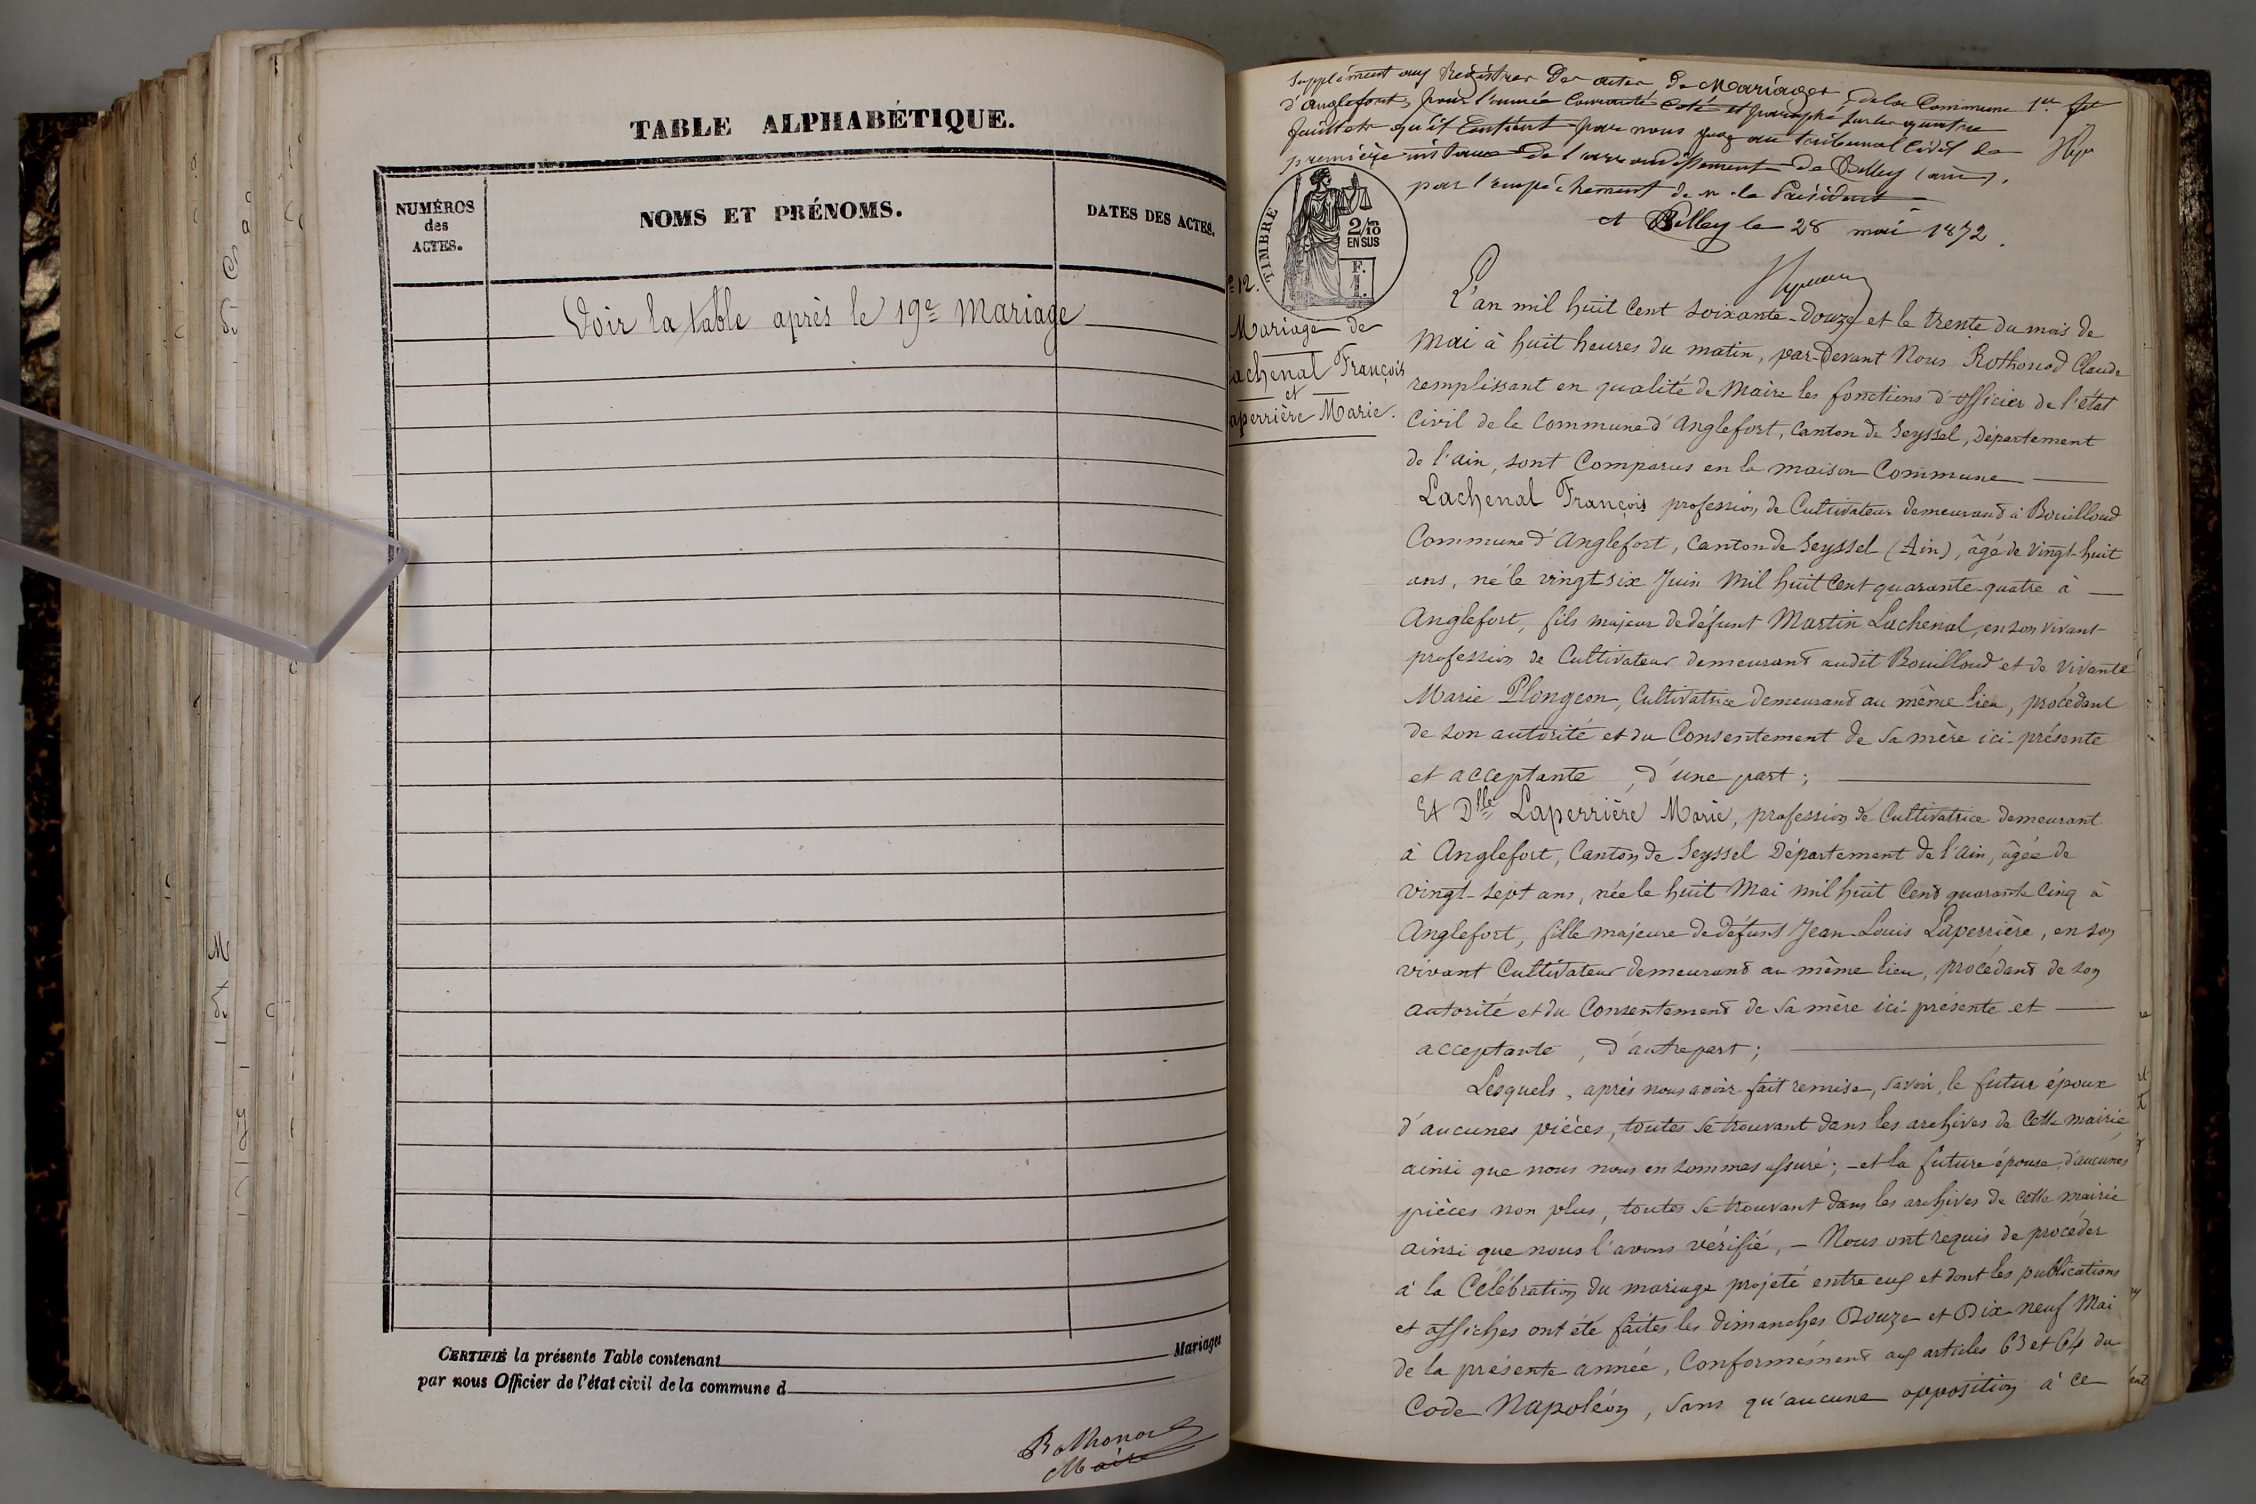 TABLE ALPHABÉTIQUE.
NUMÉROS
des
ACTES.
NOMS ET PRÉNOMS.
DATES DES ACTES.
Voir la table après le 19e mariage
CERTIFIÉ la présente Table contenant
Mariages
par nous Officier de l'état civil de la commune d
Rothonod
Maire
Supplément aux Registres des actes de Mariages de la Commune 1er fet
d'Anglefort, pour l'année courante coté et paraphé sur les quatre
feuillets qu'il contient par nous juge au tribunal civil de
première instance de l'arrondissement de Belley (ain).
par l'empêchement de m. le Président
A Belley le 28 mai 1872.
TIMBRE
2/10
EN SUS
F.
1.
12.
Mariage de
achenal François
et
aperrière Marie.
L'an mil huit Cent soixante-douze et le trente du mois de
Mai à huit heures du matin, par-devant Nous Rothonod Claude
remplissant en qualité de Maire les fonctions d'officier de l'état
Civil de la Commune d'Anglefort, Canton de Seyssel, Département
de l'ain, sont Comparus en la maison Commune
Lachenal François profession de Cultivateur demeurant à Bouilloud
Commune d'Anglefort, Canton de Seyssel (Ain), âgé de vingt-huit
ans, né le vingt six Juin Mil huit Cent quarante-quatre à
Anglefort, fils majeur de défunt Martin Lachenal, en son vivant
profession de Cultivateur demeurant audit Bouilloud et de vivante
Marie Plongeon, Cultivatrice demeurant au même lieu, procédant
de son autorité et du Consentement de sa mère ici-présente
et acceptante, d'une part;
Et Dlle Laperrière Marie, profession de Cultivatrice demeurant
à Anglefort, Canton de Seyssel Département de l'ain, âgée de
vingt-sept ans, née le huit Mai mil huit Cent quarante Cinq à
Anglefort, fille majeure de défunt Jean-Louis Laperrière, en son
vivant Cultivateur demeurant au même lieu, procédant de son
autorité et du Consentement de sa mère ici-présente et
acceptante, d'autre part;
Lesquels, après nous avoir fait remise, savoir, le futur époux
d'aucunes pièces, toutes se trouvant dans les archives de cette mairie,
ainsi que nous nous en sommes assuré; - et la future épouse, d'aucunes
pièces non plus, toutes se trouvant dans les archives de cette mairie
ainsi que nous l'avons vérifié, - Nous ont requis de procéder
à la Célébration du mariage projeté entre eux et dont les publications
et affiches ont été faites les dimanches Douze et Dix-neuf Mai
de la présente année, Conformément aux articles 63 et 64 du
Code Napoléon, sans qu'aucune opposition à ce